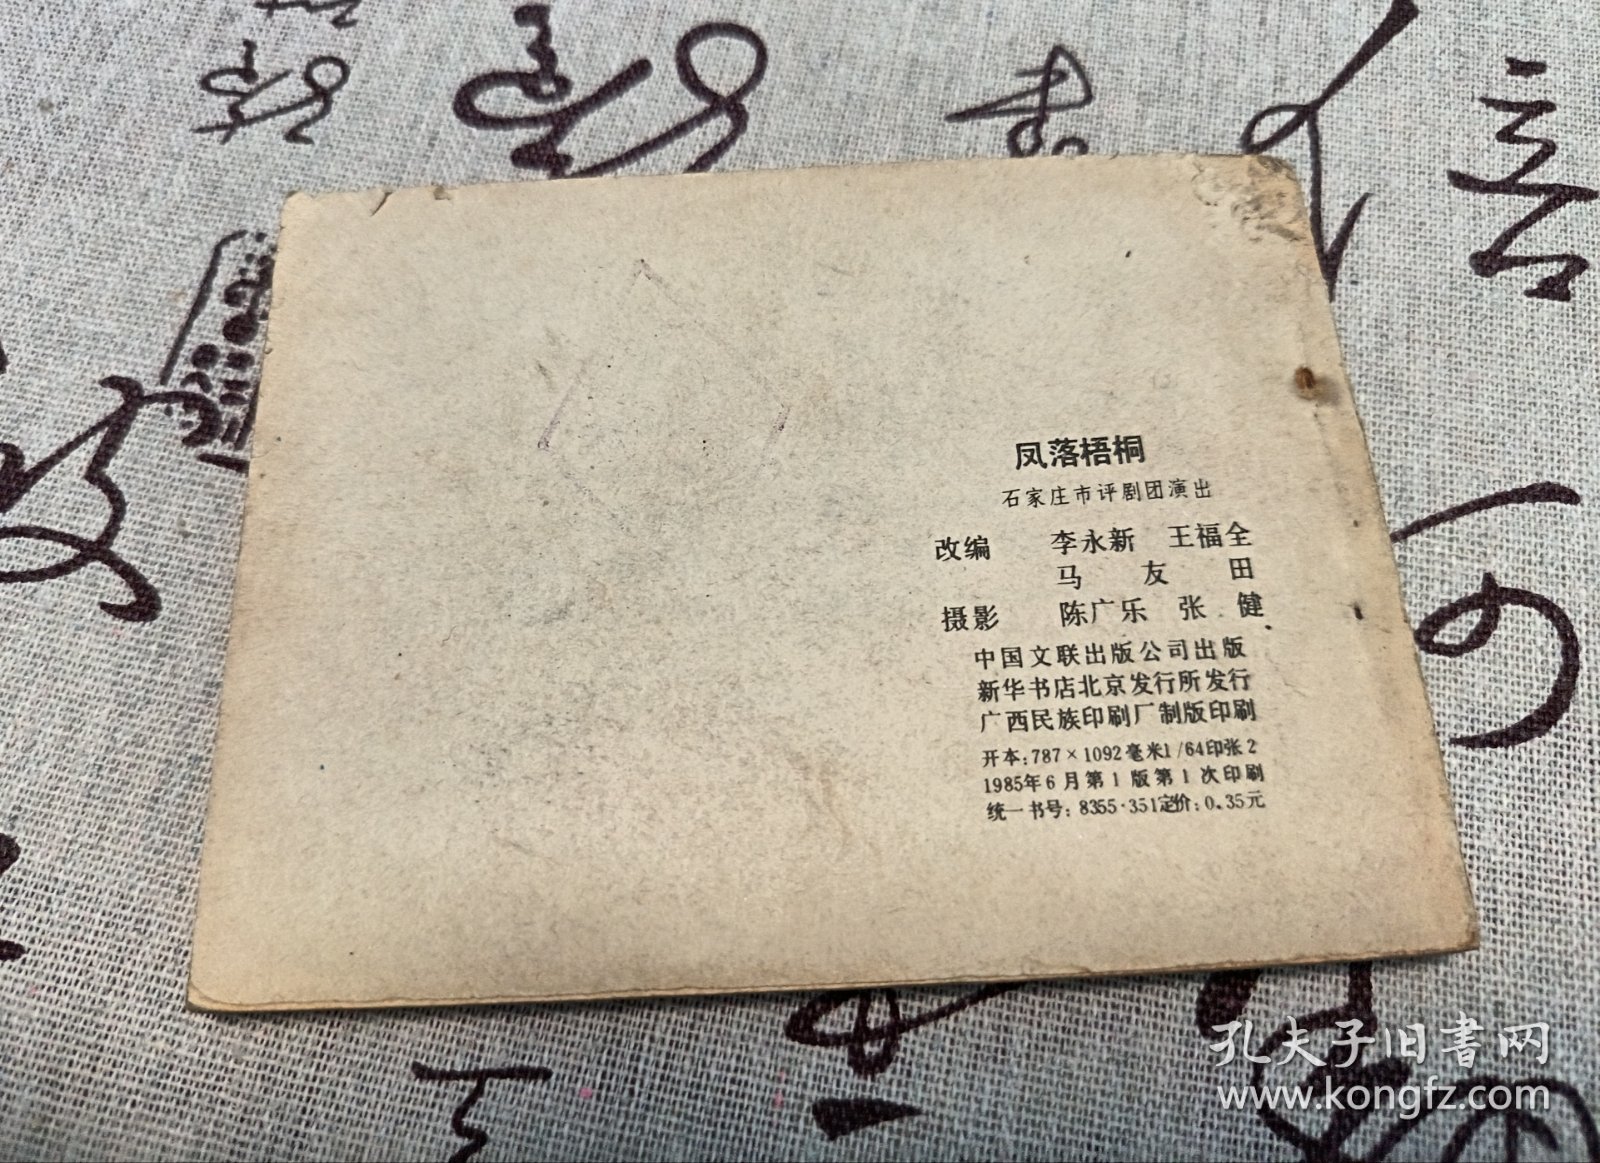 凤落梧桐
石家庄市评剧团演出
改编 李永新 王福全
马友田
摄影 陈广乐 张健
中国文联出版公司出版
新华书店北京发行所发行
广西民族印刷厂制版印刷
开本:787×1092毫米1/64印张2
1985年6月第1版第1次印刷
统一书号:8355·351定价:0.35元
孔夫子旧书网
www.kongfz.com